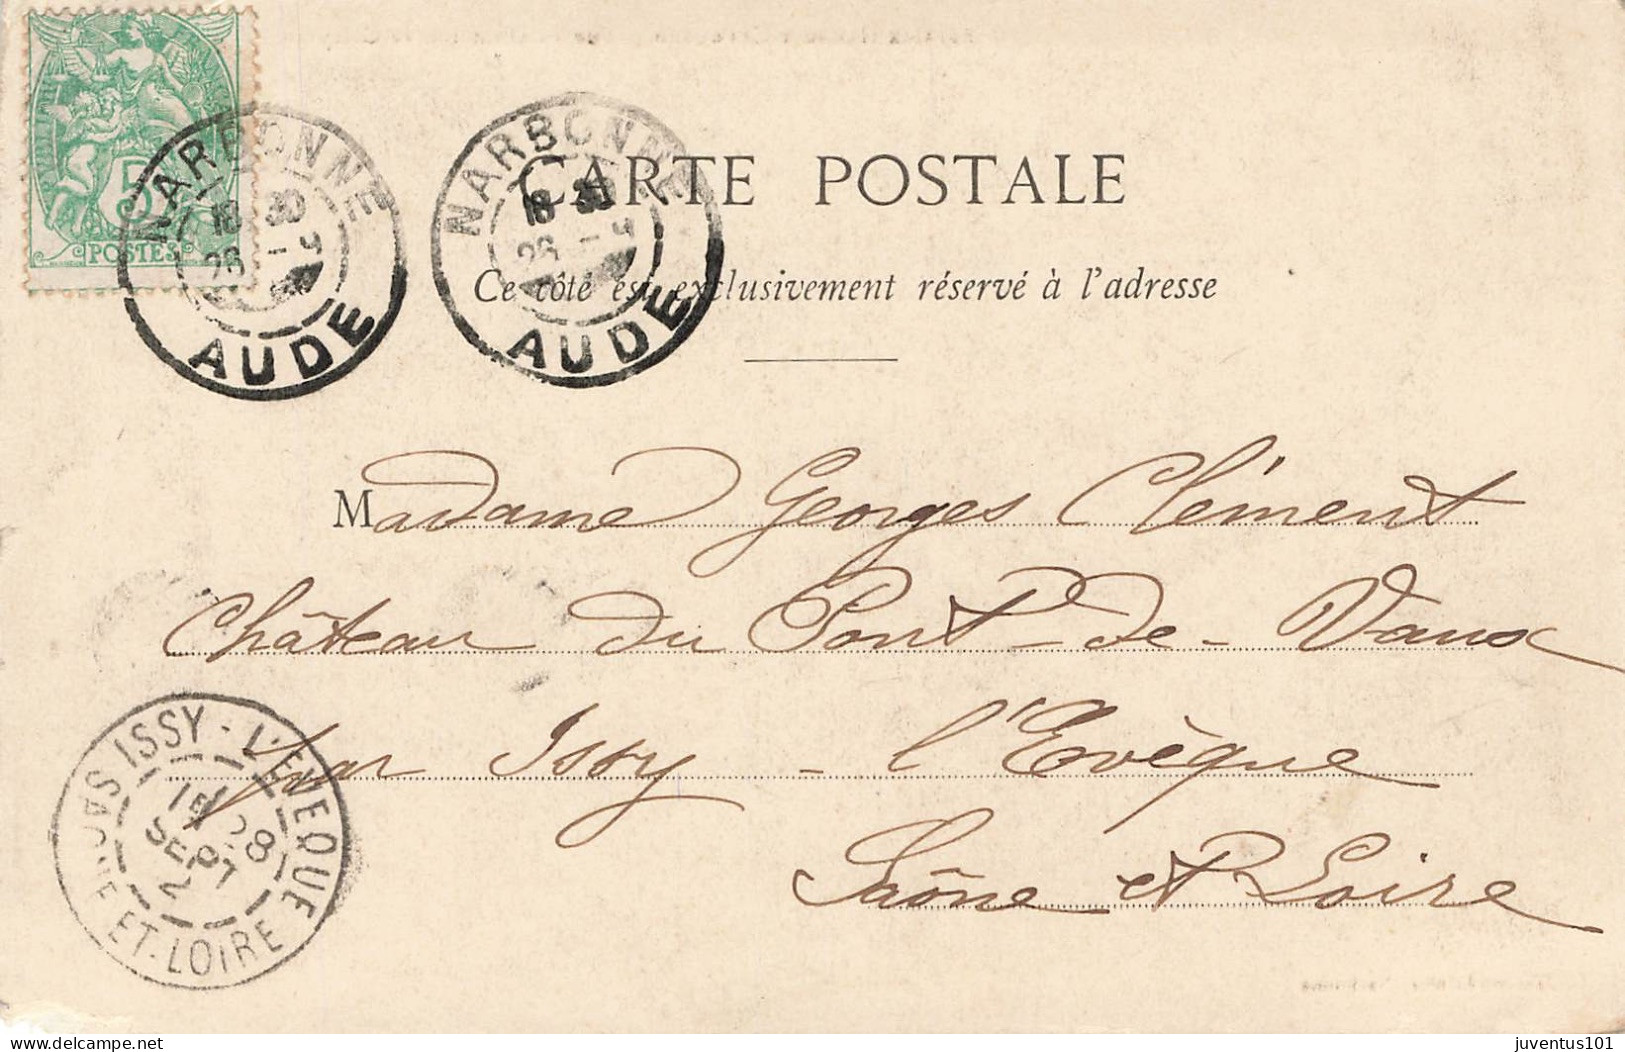 5
POSTES
NARBONNE
18 30
26 - 9
AUDE
NARBONNE
18 30
26 - 9
AUDE
CARTE POSTALE
Ce côté est exclusivement réservé à l'adresse
Madame Georges Clément
Château du Pont-de-Vaux
par Issy - l'Evèque
Saône et Loire
ISSY-L'EVEQUE
28
SEPT
SAONE ET-LOIRE
delcampe.net
juventus101